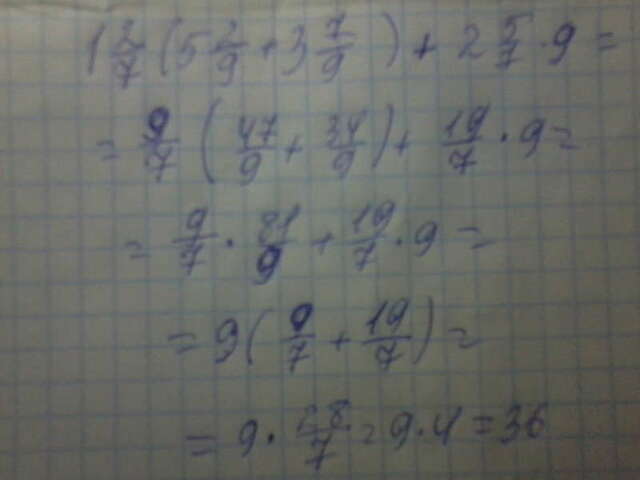 1 2/7 (5 2/9 + 3 7/9) + 2 5/7 · 9 =
= 9/7 (47/9 + 34/9) + 19/7 · 9 =
= 9/7 · 81/9 + 19/7 · 9 =
= 9 (9/7 + 19/7) =
= 9 · 28/7 = 9 · 4 = 36